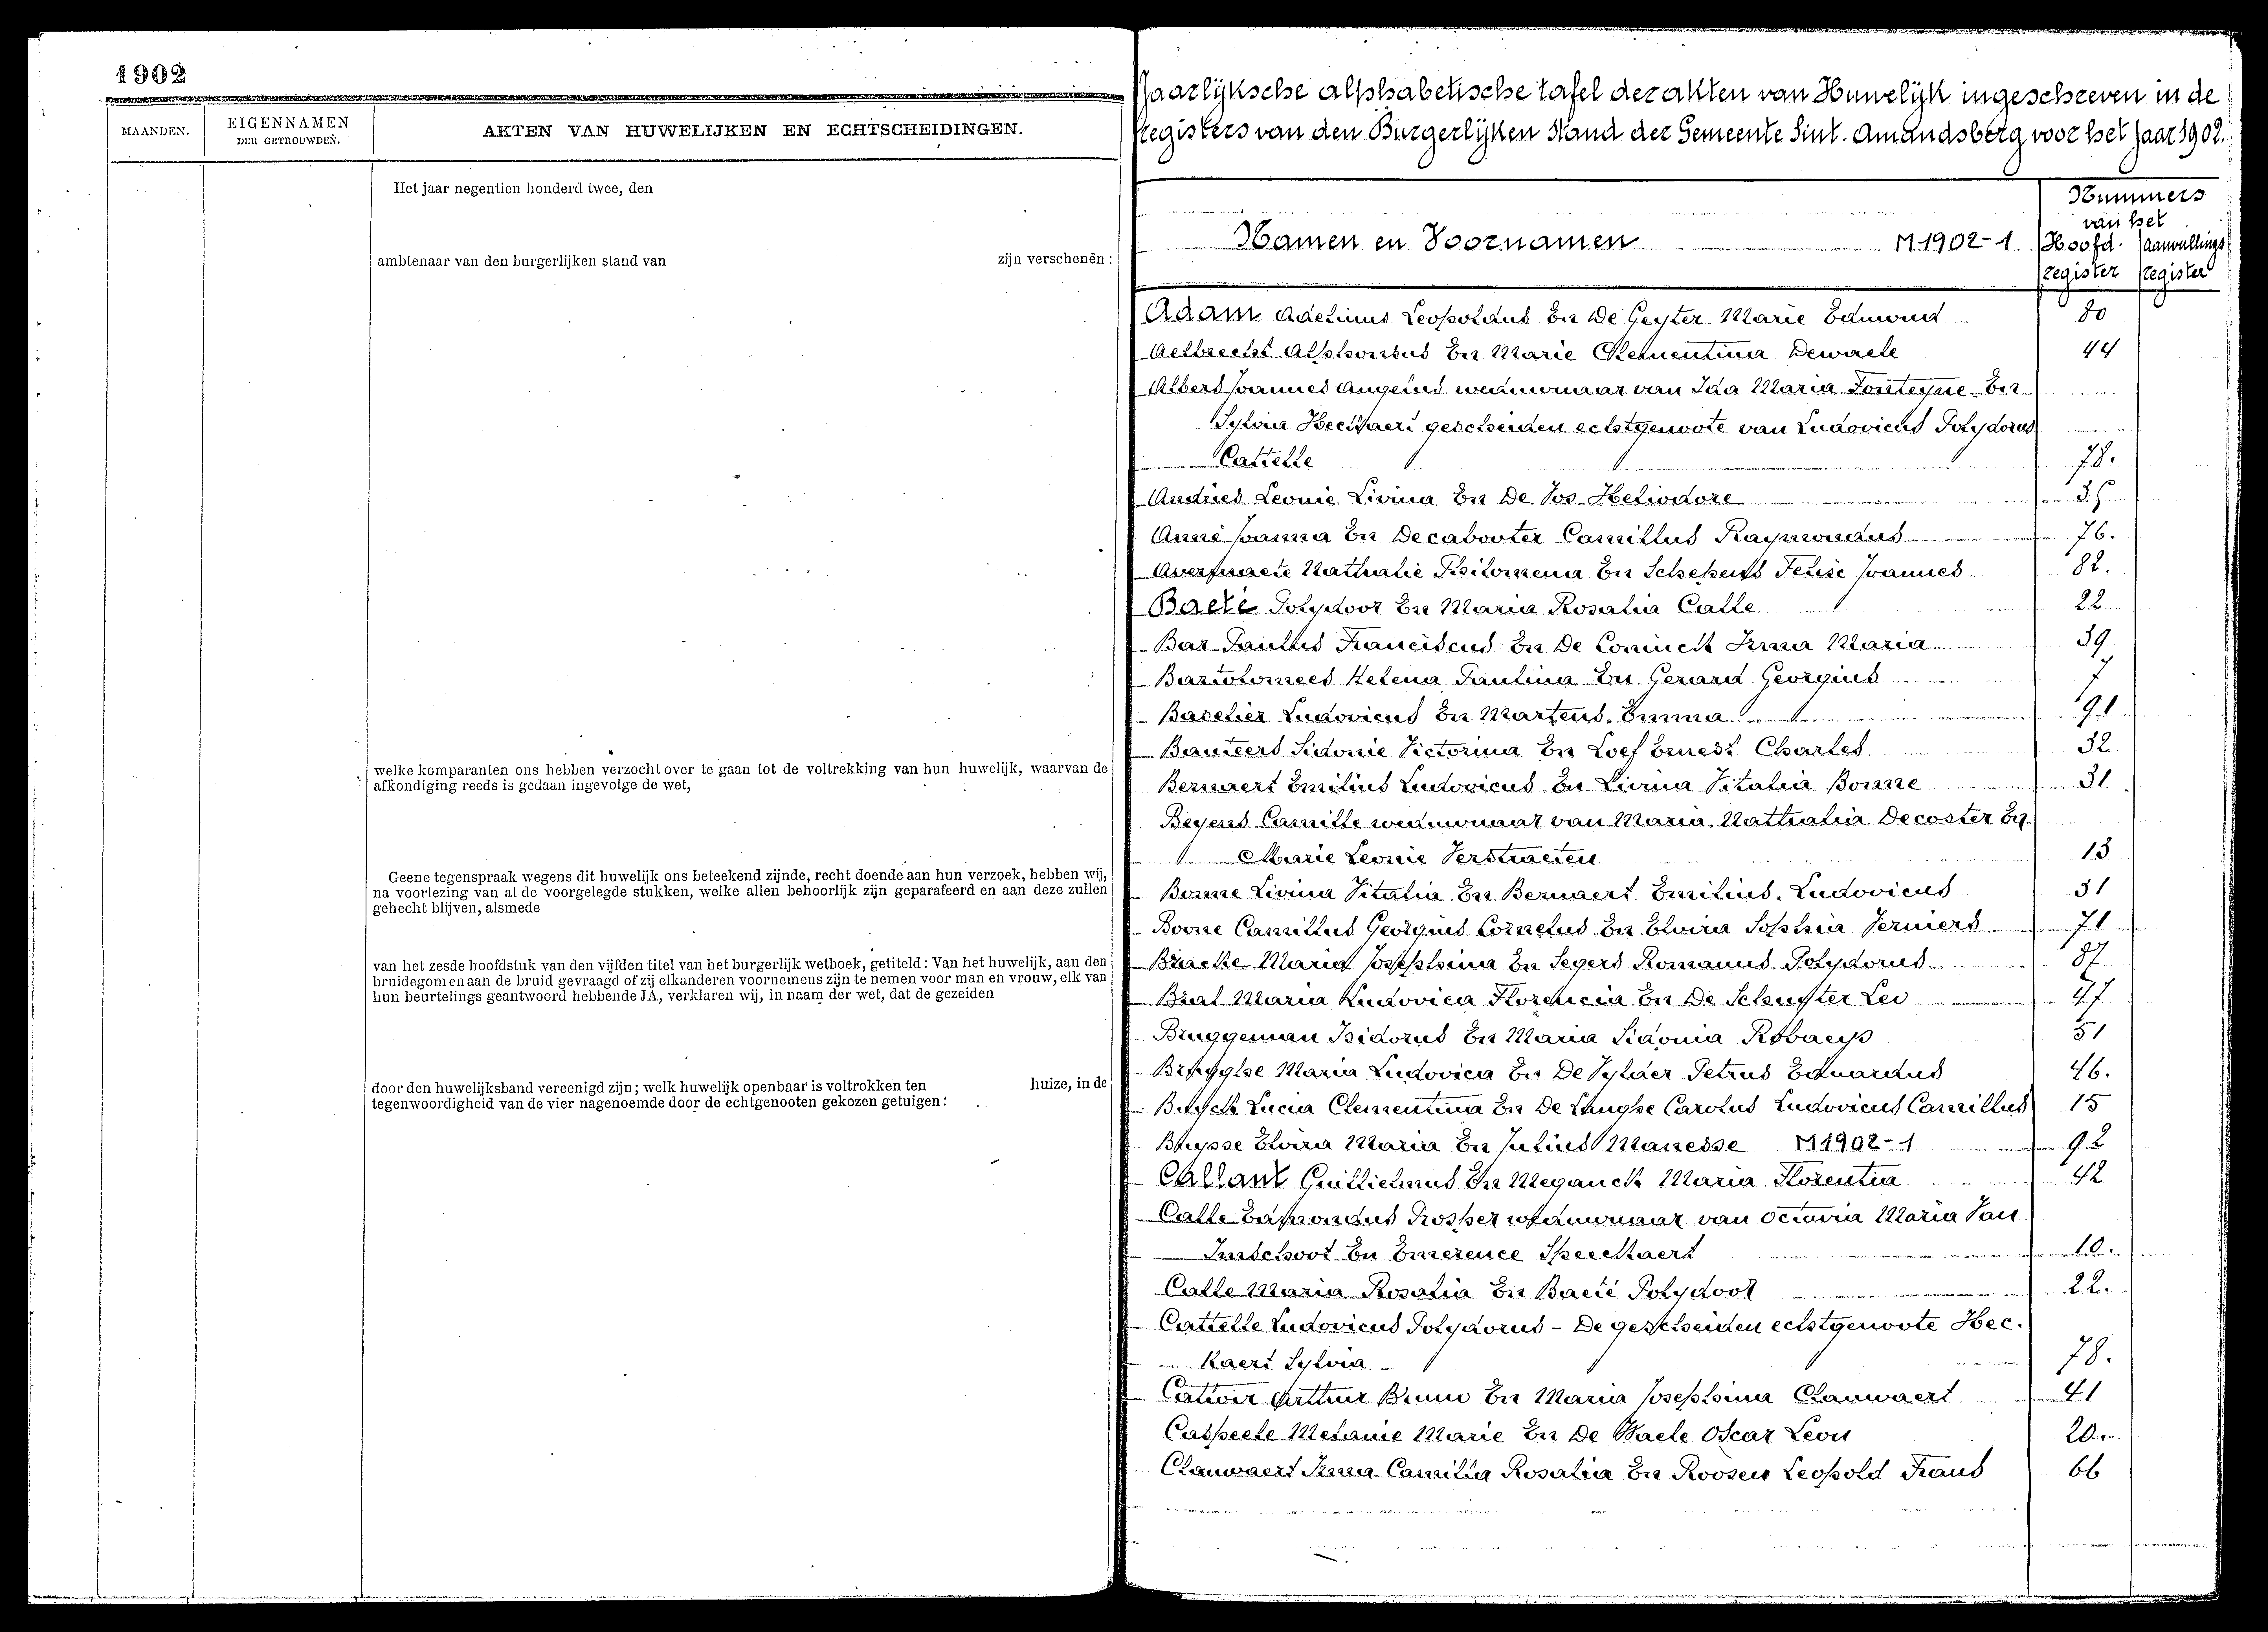 1902
MAANDEN.
EIGENNAMEN
DER GETROUWDEN.
AKTEN VAN HUWELIJKEN EN ECHTSCHEIDINGEN.
Het jaar negentien honderd twee, den
ambtenaar van den burgerlijken stand van zijn verschenen :
welke komparanten ons hebben verzocht over te gaan tot de voltrekking van hun huwelijk, waarvan de
afkondiging reeds is gedaan ingevolge de wet,
Geene tegenspraak wegens dit huwelijk ons beteekend zijnde, recht doende aan hun verzoek, hebben wij,
na voorlezing van al de voorgelegde stukken, welke allen behoorlijk zijn geparafeerd en aan deze zullen
gehecht blijven, alsmede
van het zesde hoofdstuk van den vijfden titel van het burgerlijk wetboek, getiteld : Van het huwelijk, aan den
bruidegom en aan de bruid gevraagd of zij elkanderen voornemens zijn te nemen voor man en vrouw, elk van
hun beurtelings geantwoord hebbende JA, verklaren wij, in naam der wet, dat de gezeiden
door den huwelijksband vereenigd zijn; welk huwelijk openbaar is voltrokken ten huize, in de
tegenwoordigheid van de vier nagenoemde door de echtgenooten gekozen getuigen :
Jaarlijksche alphabetische tafel der akten van Huwelijk ingeschreven in de
Registers van den Burgerlijken Stand der Gemeente Sint-Amandsberg voor het jaar 1902.
Namen en Voornamen M 1902-1
Nummers
van het
Hoofd- Aanvullings
register register
Adam Adelinus Leopoldus En De Geyter Marie Edmond 80
Aelbrecht Alphonsus En Marie Clementina Dewaele 44
Albers Joannes weduwnaar van Ida Maria Fonteyne En
Sylvia Heckaert gescheiden echtgenoote van Ludovicus Polydorus
Cattelle 78.
Andries Leonie Livina En De Vos Heliodore
Anné Joanna En Decabooter Camillus Raymondus 76.
Nathalie Philomena En Schepens Felise Joannes 82.
Baeté Polydoor En Maria Rosalia Calle 22
Bar Paulus Franciscus En De Coninck Irma Maria 39
Bartolomees Helena Paulina En Gerard Georgius 7
Baselier Ludovicus En Martens Emma 91
Bauters Sidonie Victorina En Loef Ernest Charles 32
Bernaert Emilius Ludovicus En Livina Vitalia Bonne 31
Beyens Camille weduwnaar van Maria Nathalia Decoster En
Marie Leonie Verstraeten 13
Bonne Livina Vitalia En Bernaert Emilius Ludovicus 31
Boone Camillus Georgius Cornelus En Elvira Sophia Verniers 71
Bracke Maria Josephina En Segers Romanus Polydorus 87
Maria Ludovica Florencia En De Schuyter Leo 47
Bruggeman Isidorus En Maria Sidonia Robaeys 51
Maria Ludovica En De Vylder Petrus Eduardus 46.
Buyck Lucia Clementina En De Langhe Carolus Ludovicus Camillus 15
Buysse Elvira Maria En Julius Manesse M 1902-1 92
Callant Guillielmus En Meganck Maria Florentia 42
Calle Edmondus Prosper weduwnaar van Octavia Maria Van
Imschoot En Emerence Speeckaert 10.
Calle Maria Rosalia En Baeté Polydoor 22.
Cattelle Ludovicus Polydorus - De gescheiden echtgenoote Hec-
kaert Sylvia 78.
Cattoir Arthur Bruno En Maria Josephina Clauwaert 41
Caspeele Melanie Marie En De Waele Oscar Leon 20.
Clauwaert Irma Camilia Rosalia En Roosen Leopold Frans 66